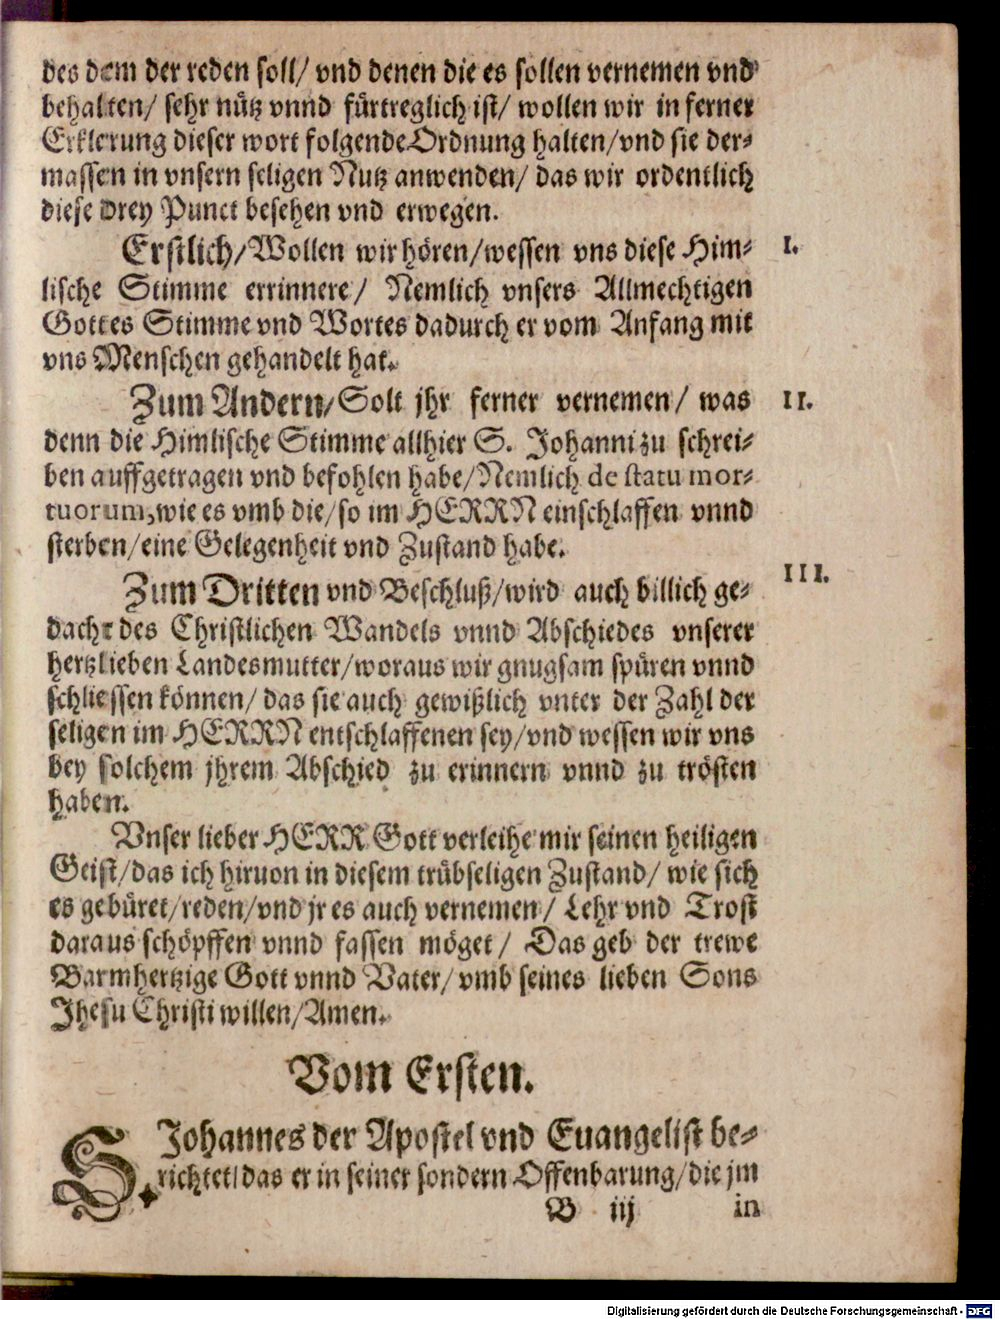 des dem der reden soll/ vnd denen die es sollen vernemen vnd
behalten/ sehr nütz vnnd fürtreglich ist/ wollen wir in ferner
Erklerung dieser wort folgende Ordnung halten/ vnd sie der⸗
massen in vnsern seligen Nutz anwenden/ das wir ordentlich
diese drey Punct besehen vnd erwegen.
Erstlich/ Wollen wir hören/ wessen vns diese Him⸗ I.
lische Stimme errinnere/ Nemlich vnsers Allmechtigen
Gottes Stimme vnd Wortes dadurch er vom Anfang mit
vns Menschen gehandelt hat.
Zum Andern/ Solt jhr ferner vernemen/ was II.
denn die Himlische Stimme allhier S. Johanni zu schrei⸗
ben auffgetragen vnd befohlen habe/ Nemlich de statu mor-
tuorum, wie es vmb die/ so im HERRN einschlaffen vnnd
sterben/ eine Gelegenheit vnd Zustand habe.
Zum Dritten vnd Beschluß/ wird auch billich ge⸗ III.
dacht des Christlichen Wandels vnnd Abschiedes vnserer
hertzlieben Landesmutter/ woraus wir gnugsam spüren vnnd
schliessen können/ das sie auch gewißlich vnter der Zahl der
seligen im HERRN entschlaffenen sey/ vnd wessen wir vns
bey solchem jhrem Abschied zu erinnern vnnd zu trösten
haben.
Vnser lieber HERR Gott verleihe mir seinen heiligen
Geist/ das ich hiruon in diesem trübseligen Zustand/ wie sich
es gebüret/ reden/ vnd jr es auch vernemen/ Lehr vnd Trost
daraus schöpffen vnnd fassen möget/ Das geb der trewe
Barmhertzige Gott vnnd Vater/ vmb seines lieben Sons
Jhesu Christi willen/ Amen.
Vom Ersten.
S. Johannes der Apostel vnd Euangelist be⸗
richtet/ das er in seiner sondern Offenbarung/ die jm
B iij in
Digitalisierung gefördert durch die Deutsche Forschungsgemeinschaft - DFG